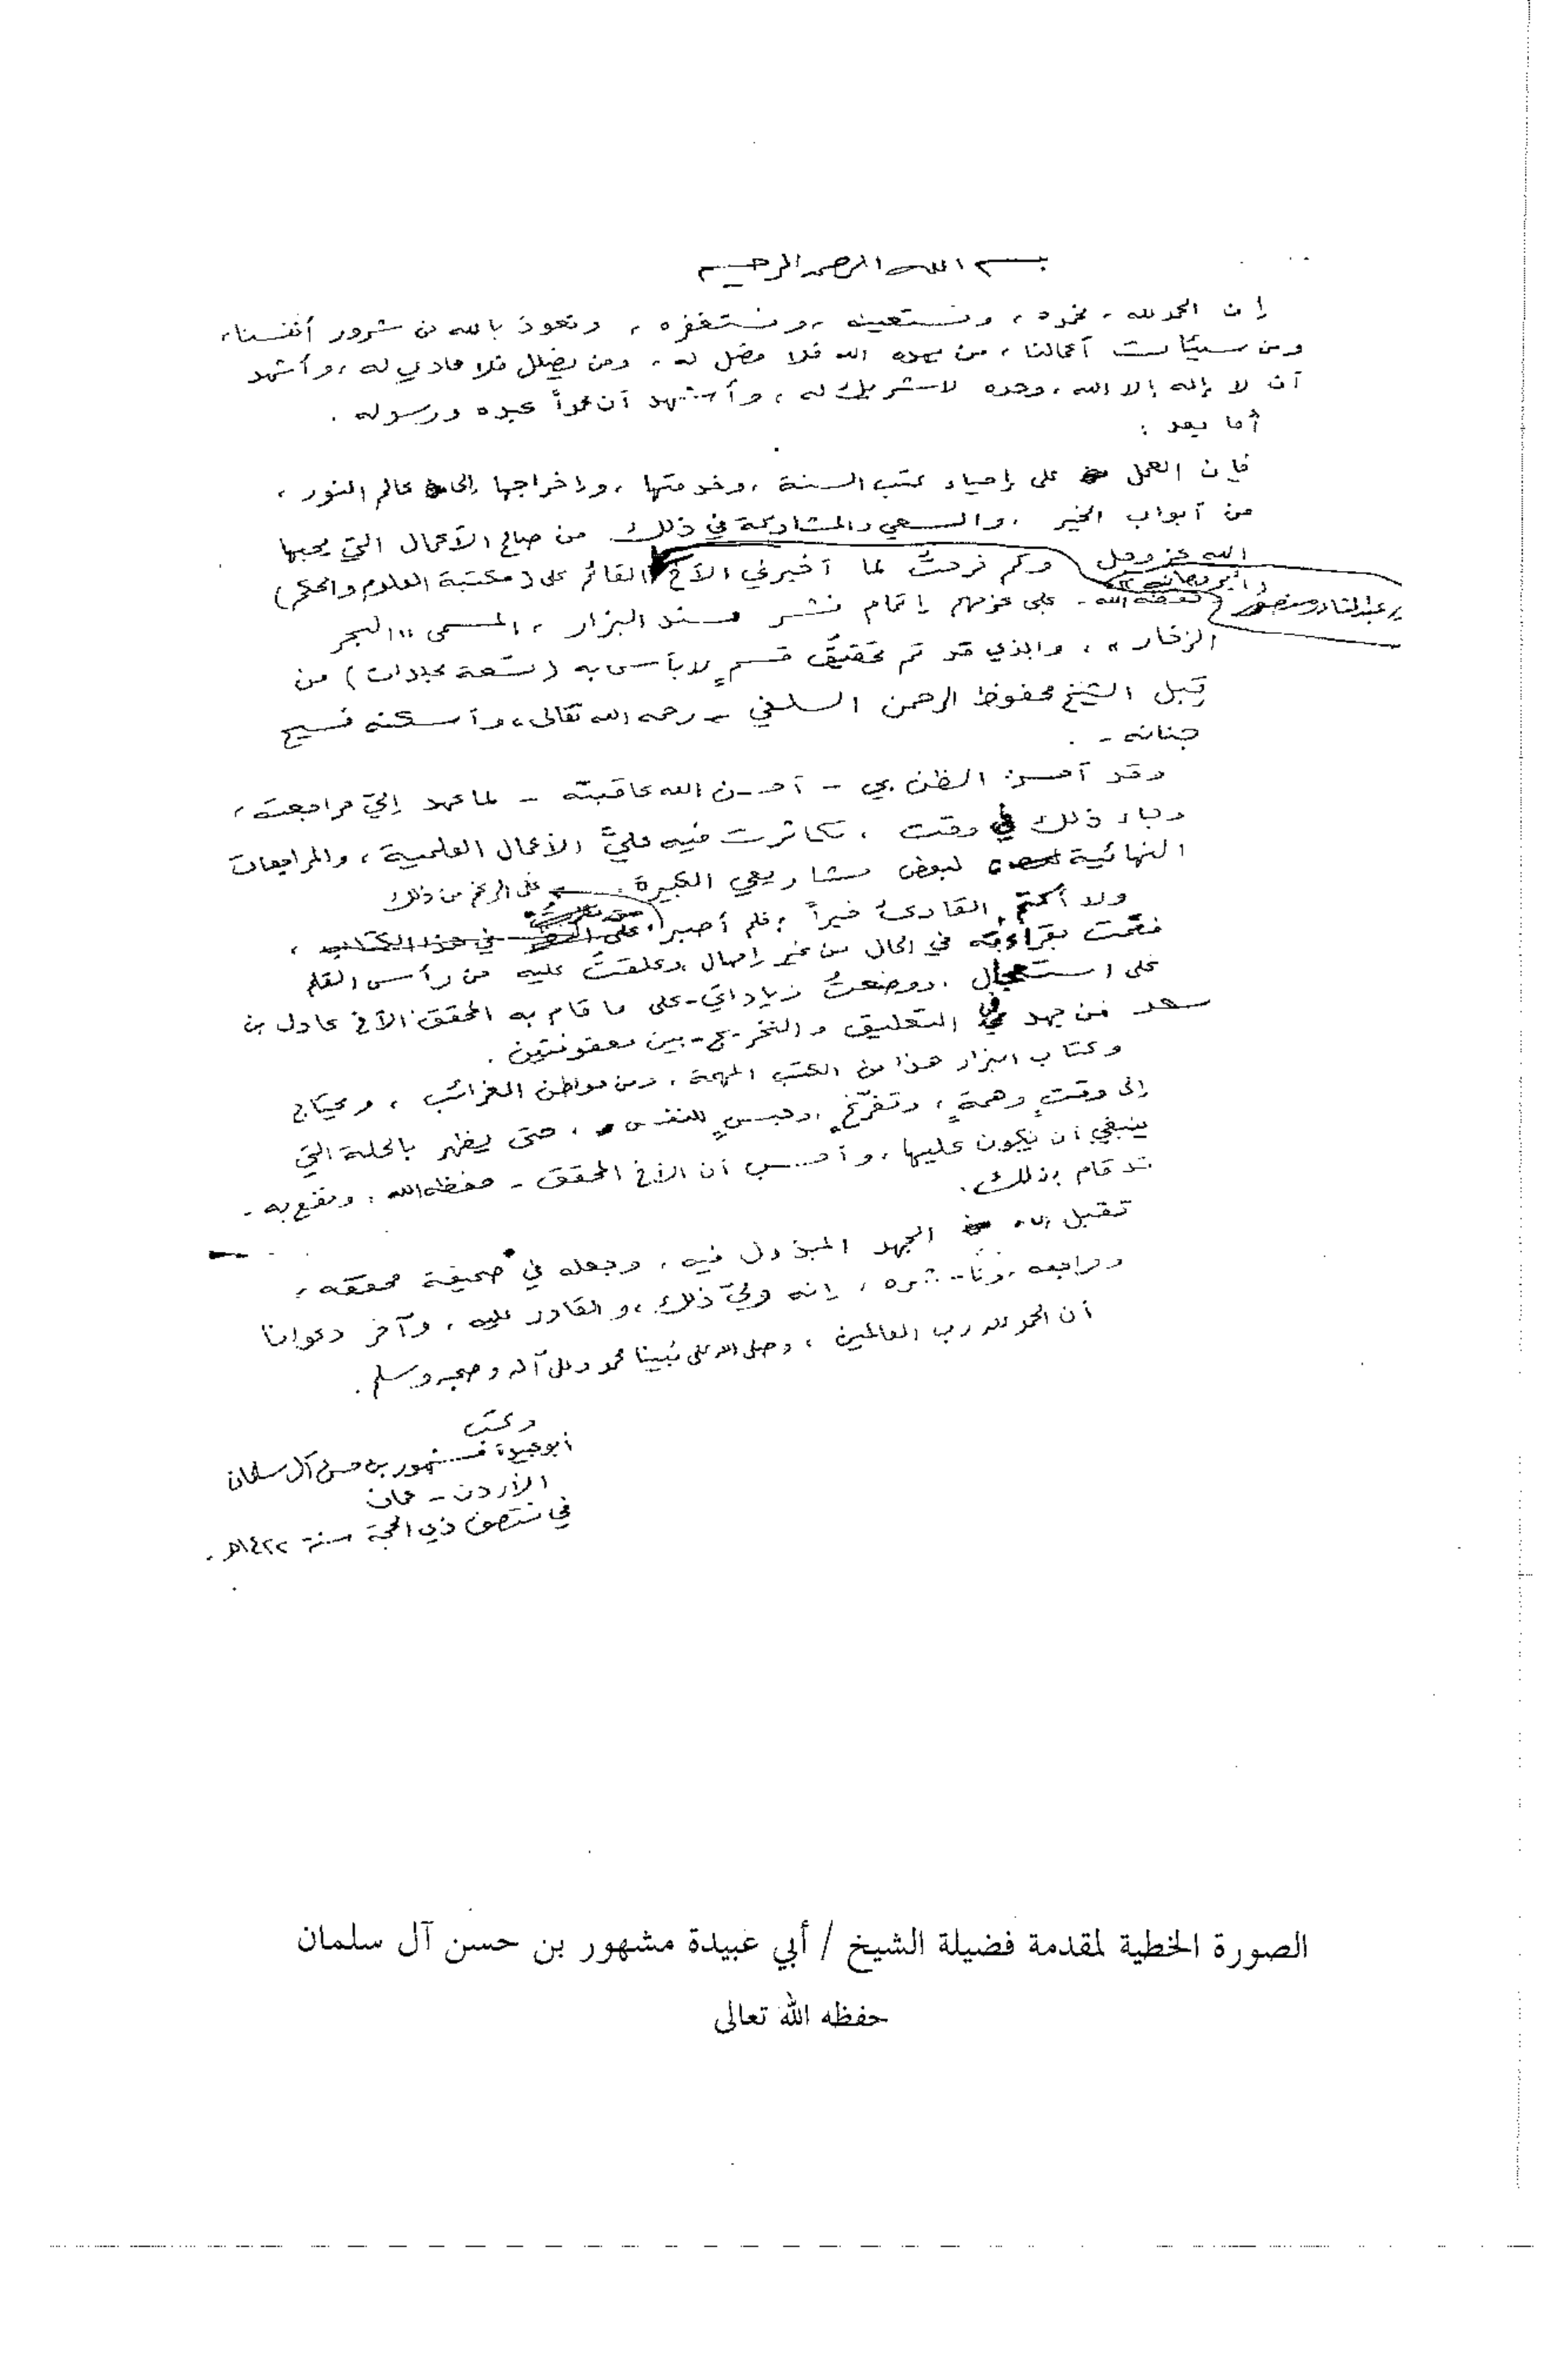 بسم الله الرحمن الرحيم
إن الحمد لله، نحمده، ونستعينه، ونستغفره، ونعوذ بالله من شرور أنفسنا،
ومن سيئات أعمالنا، من يهده الله فلا مضل له، ومن يضلل فلا هادي له، وأشهد
أن لا إله إلا الله، وحده لا شريك له، وأشهد أن محمداً عبده ورسوله.
أما بعد:
فإن العمل على إحياء كتب السنة، وخدمتها، وإخراجها إلى عالم النور،
من أبواب الخير، والسعي والمشاركة في ذلك من صالح الأعمال التي يحبها
الله عز وجل وكم فرحتُ لما أخبرني الأخ القائم على (مكتبة العلوم والحكم)
/ عبدالقادر منصور (
حفظه الله - على عزمهم إتمام نشر مسند البزار، المسمى «البحر
الزخار»، والذي قد تم تحقيق قسمٍ لا بأس به (تسعة مجلدات) من
قِبل الشيخ محفوظ الرحمن السلفي - رحمه الله تعالى، وأسكنه فسيح
جنانه - .
وقد أحسن الظن بي - أحسن الله عاقبته - لما عهد إليّ مراجعته،
وجاء ذلك في وقت، تكاثرت فيه عليَّ الأعمال العلمية، والمراجعات
النهائية لبعض مشاريعي الكبيرة. وعلى الرغم من ذلك
ولا أكتم القارئ خبراً؛ فلم أصبر،
فقمت بقراءته في الحال من غير إمهال، وعلقتُ عليه من رأس القلم
على استعجال، ووضعتُ زياداتي - على ما قام به المحقق الأخ عادل بن
سعد من جهد في التعليق والتخريج - بين معقوفتين.
وكتاب البزار هذا من الكتب المهمة، ومن مواطن الغرائب، ويحتاج
إلى وقتٍ وهمةٍ، وتفرّغٍ، وحبسٍ للنفس، حتى يظهر بالحلة التي
ينبغي أن يكون عليها، وأحسب أن الأخ المحقق - حفظه الله، ونفع به -
قد قام بذلك.
تقبل الله الجهد المبذول فيه، وجعله في صحيفة محققه،
ومراجعه، وناشره، إنه وليّ ذلك، والقادر عليه، وآخر دعوانا
أن الحمد لله رب العالمين، وصلى الله على نبينا محمد وعلى آله وصحبه وسلم.
وكتب
أبو عبيدة مشهور بن حسن آل سلمان
الأردن - عمان
في منتصف ذي الحجة سنة ١٤٢٢هـ.
الصورة الخطية لمقدمة فضيلة الشيخ / أبي عبيدة مشهور بن حسن آل سلمان
حفظه الله تعالى